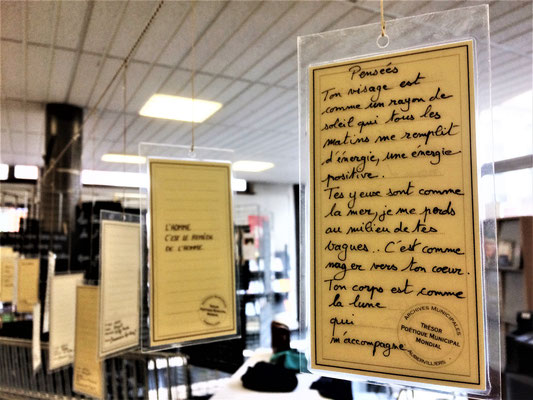 Pensées
Ton visage est
comme un rayon de
soleil qui tous les
matins me remplit
d'énergie, une énergie
positive.
Tes yeux sont comme
la mer, je me perds
au milieu de tes
vagues.. C'est comme
nager vers ton coeur.
Ton corps est comme
la lune
qui
m'accompagne
ARCHIVES MUNICIPALES
TRÉSOR
POÉTIQUE MUNICIPAL
MONDIAL
AUBERVILLIERS
L'HOMME.
C'EST LE REMÈDE
DE L'HOMME.